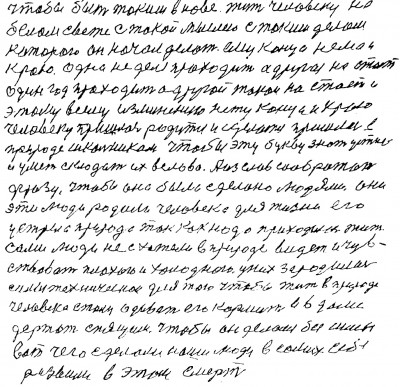 чтобы быть таким внове. жить человеку на
белом свете с такой мыслью с таким делом
которого он начал делать ему конца нема и
краю. Одна неделя проходит а другая настает
один год проходит а другой такой настает и
этому всему изменению нету конца и краю
человеку пришлось родиться и сделать пришлось в
природе школьникам чтобы эту букву знать учить
и уметь складать их в слова. А из слов собрать
фразу, чтобы она была сделано людьми. они
эти люди родили человека для жизни его
встретила природа так как надо приходилось жить.
сами люди не схотели в природе видеть и чув-
ствовать плохого и холодного, у них зародилась
технически для того чтобы жить в природе
человека стали одевать его кормить и в доме
держать спящим. чтобы он делал без силы
вот чего сделали наши люди в самих себе
развили в этом смерть